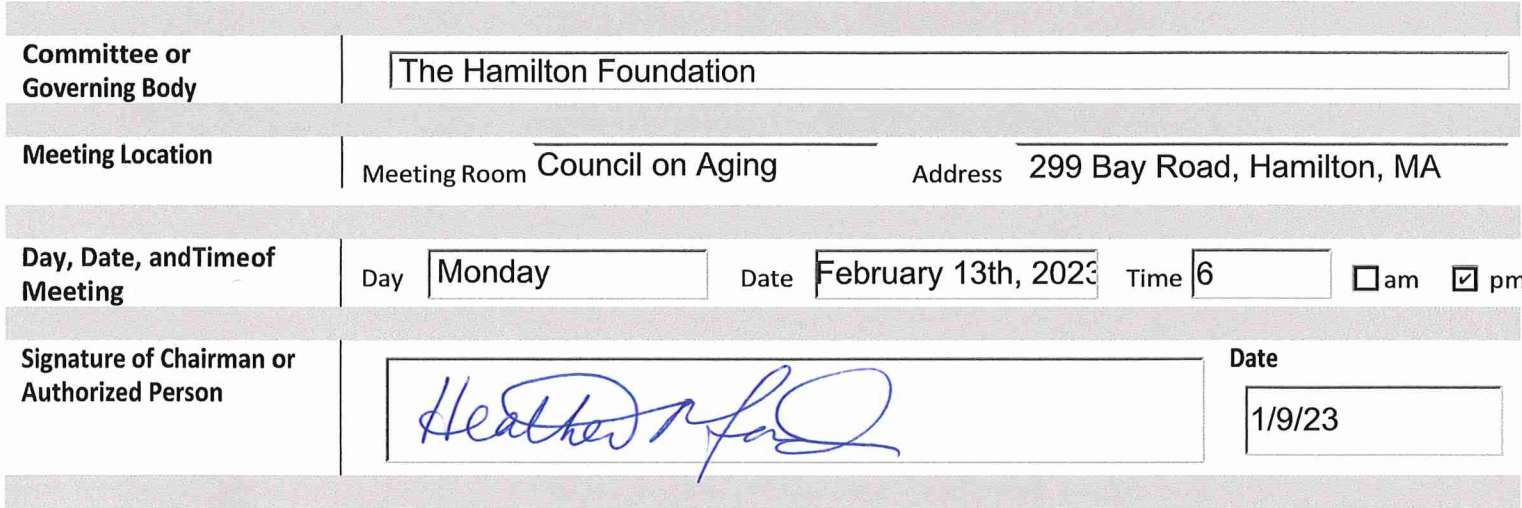 Committee or
Governing Body
The Hamilton Foundation
Meeting Location
Meeting Room Council on Aging Address 299 Bay Road, Hamilton, MA
Day, Date, andTimeof
Meeting
Day Monday Date February 13th, 2023 Time 6 am pm
Signature of Chairman or
Authorized Person
Heather
Date
1/9/23